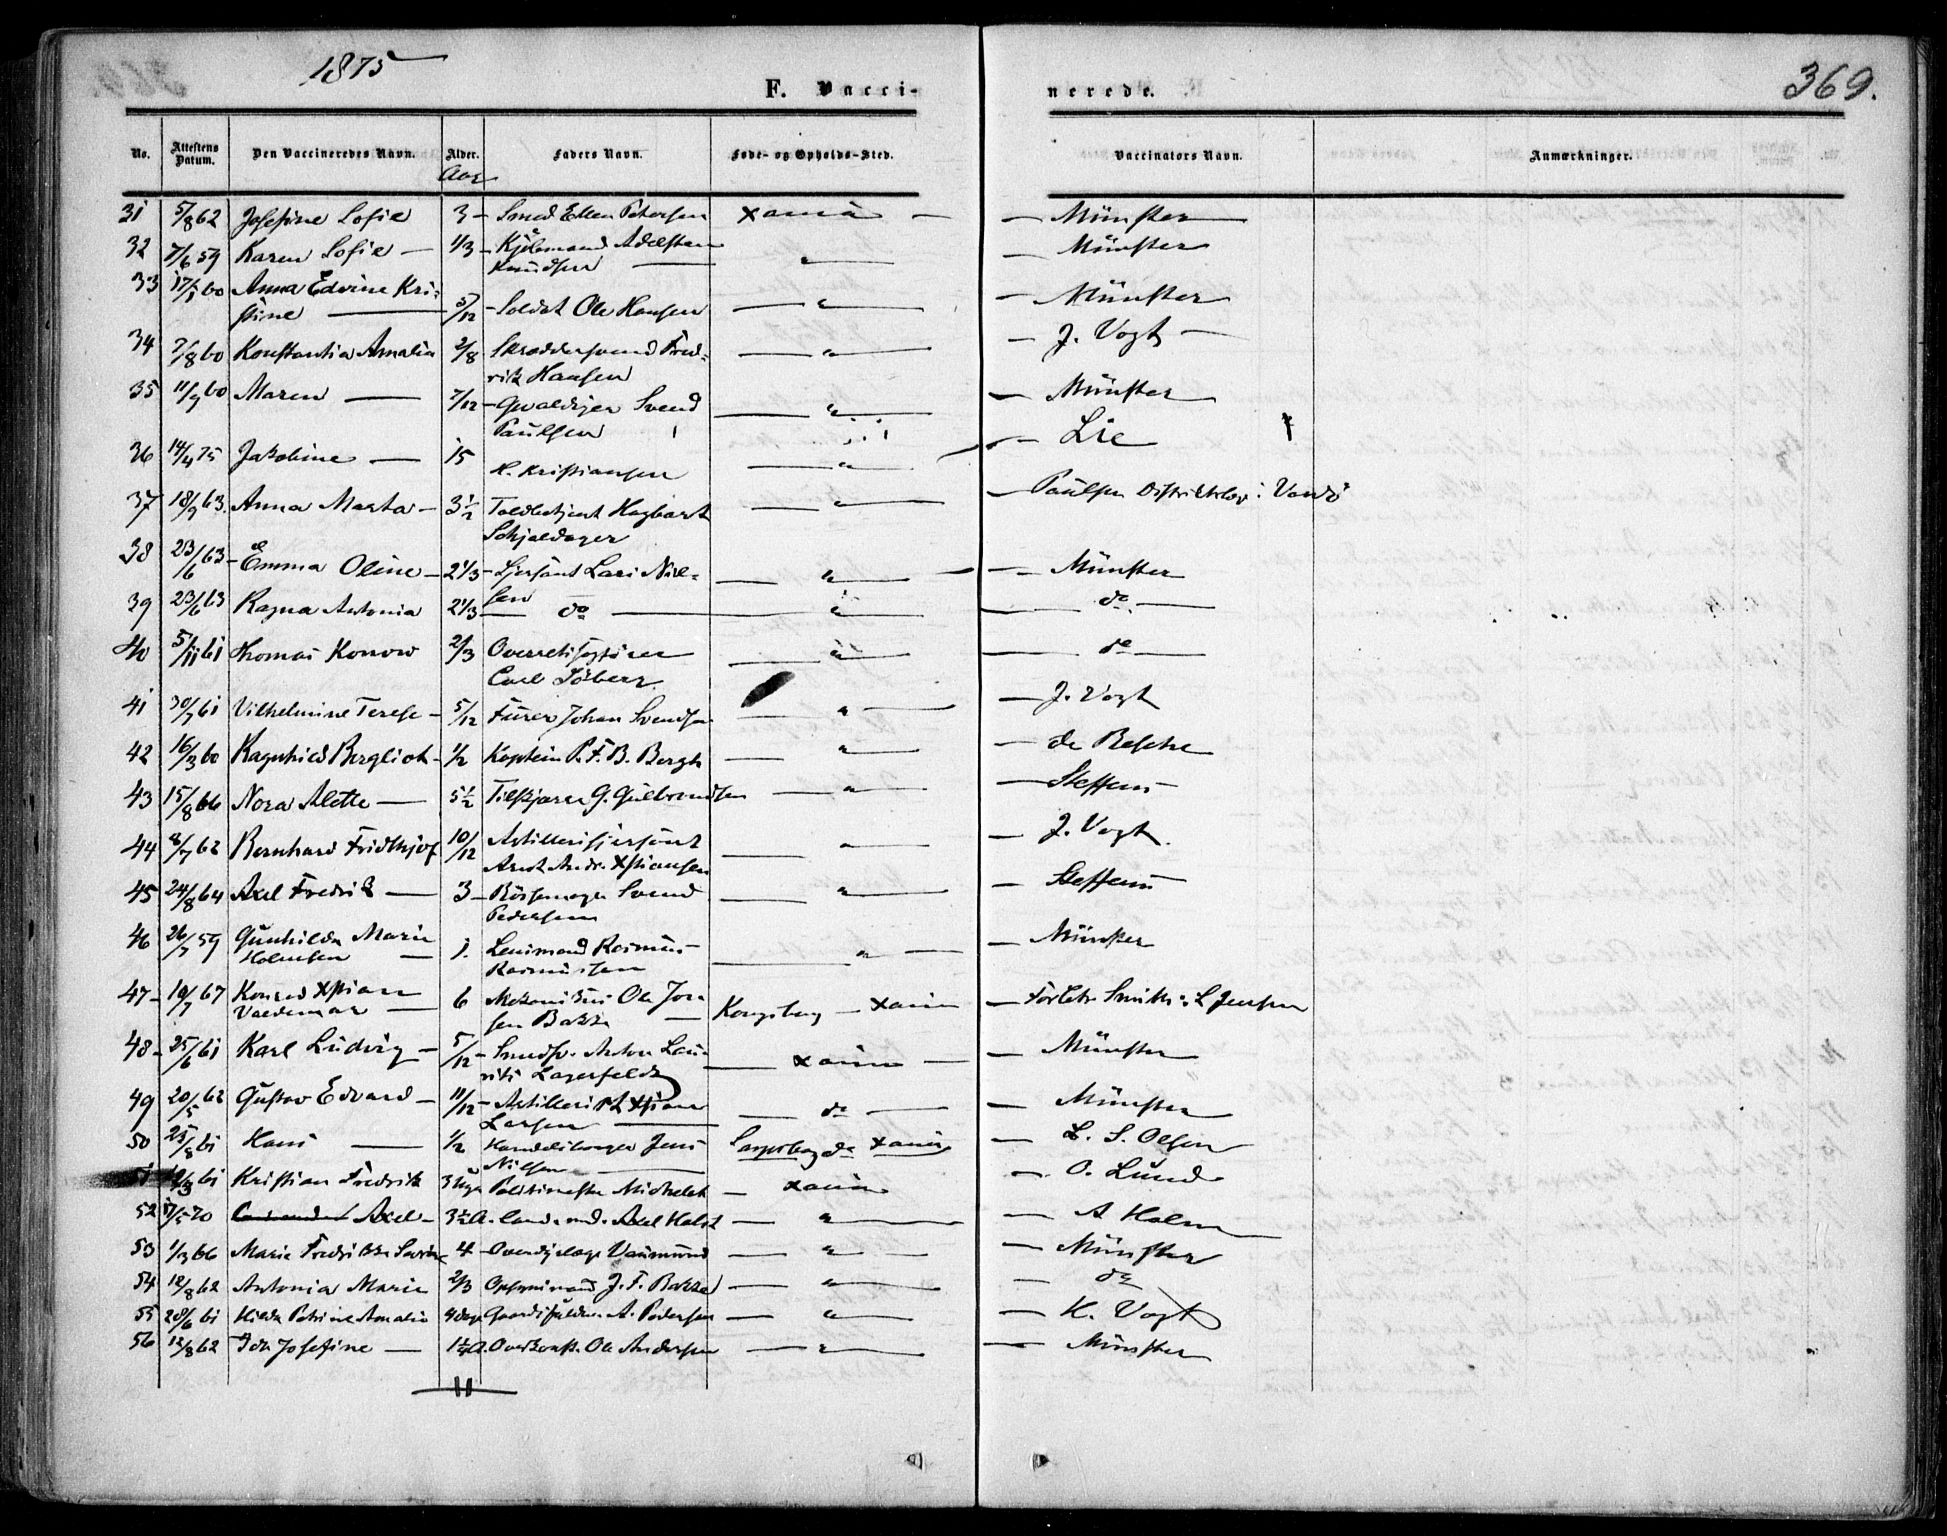 1875
369.
F. Vacci-
nerede.
No. Attestens Datum. Den Vaccineredes Navn. Alder. Faders Navn. Føde- og Opholds-Sted. Vaccinators Navn. Anmærkninger.
Aar
31 5/8 62 Josefine Sofie 3 - Smed Ellen Petersen Xania — — Münster
32 7/6 59 Karen Sofie — 1/3 - Adelsten — " — — Münster
Knudsen —
33 17/1 60 Anna Edvine Kri- — Münster
stine — 5/12 - Soldat Ole Hansen — " —
34 7/8 60 Konstantia Amalia 2/8 Skræddersvend Fred- — " — — J. Vogt —
rik Hansen
35 11/9 60 Maren — 7/12 - Gvaldiger Svend — " — — Münster
Paulsen
36 14/4 75 Jakobine — 15 H. Kristiansen — " — — Lie
37 18/9 63. Anna Marta - 3 1/2 Toldbetjent Hagbart — " — — Paulsen Distriktslæge i Vardö
Schjeldager
38 23/6 63 - Emma Oline - 2 1/3 - Sjersant Lars Niel- — " — — Münster
sen
39 23/6 63 Ragna Antonia 2 1/3 — do — — " — — do —
40 5/11 61 Thomas Konow 2/3 Overretssagfører — " — — do —
Carl
41 30/7 61 Vilhelmine Terese - 5/12 Furer Johan Svendsen — " — — J. Vogt
42 16/3 60 Ragnhild Bergliot - 1/2 Kaptein P. F. B. Bergh — " — — de Besche
43 15/8 66 Nora Alette — 5 1/2 Tilskjærer G. Gulbrandsen — " — — Steffens
44 8/7 62 Bernhard Fridthjof 10/12 Artillerisjersant — " — — J. Vogt.
Arnt Andr. Xstiansen
45 24/8 64 Axel Fredrik — 3 - Bössemager Svend — " — — Steffens
Pedersen
46 26/7 59 Gunhilda Marie 1. Rasmus — " — — Münster
Holmsen — Rasmussen
47 - 10/7 67 Konrad Xstian 6 Mekanikus Ole Jon- Kongsberg — Xania — Smith i L Jensen
Valdemar — sen Bakke —
48 - 25/6 61 Karl Ludvig — 5/12 - Smedsv. Anton Lau- — Xania — — Münster
rits Lagerfeldt
49 20/5 62 Gustav Edvard — 11/12 - Artillerist Xstian — do — — Münster
Larsen —
50 25/8 61 Hans — 1/2 Handelsborger Jens Sarpsborg do Xania — L. S. Olsen
Nilsen —
61 Kristian Fredrik 3 Uger Politimester Michelet — Xania — O. Lund
52 17/5 70 Axel - 3 1/2 A. Cand. med. Axel Holst — " — — A Holm
53 1/3 66 Marie Fredrikke Sevrine 4 - Overlæge Vaumund — " — — Münster
54 18/8 62 Antonia Marie 2/3 Opsynsmand J. F. Bakke — " — — do
55 28/6 61 Hilda Petrine Amalia A. Pedersen — " — — K. Vogt
56 12/8 62 Ida Josefine — 1 1/4 A. Overkonst. Ole Andersen — " — — Münster